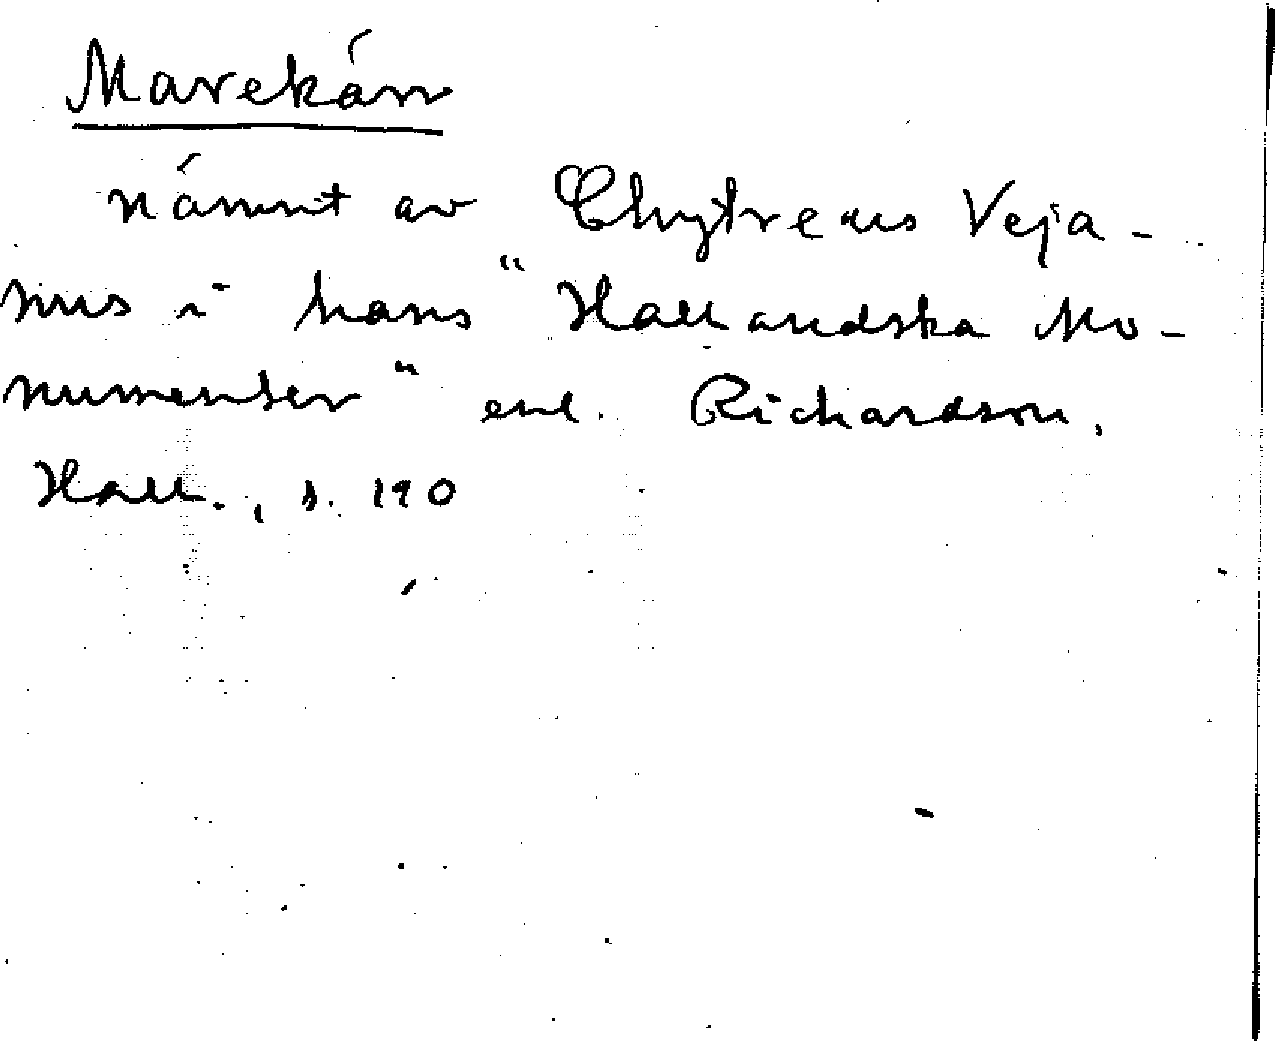 Marekärr
nämnt av Chytreaus Veja-
nus i hans "Halländska Mo-
numenter" enl. Richardson,
Hall., s. 190